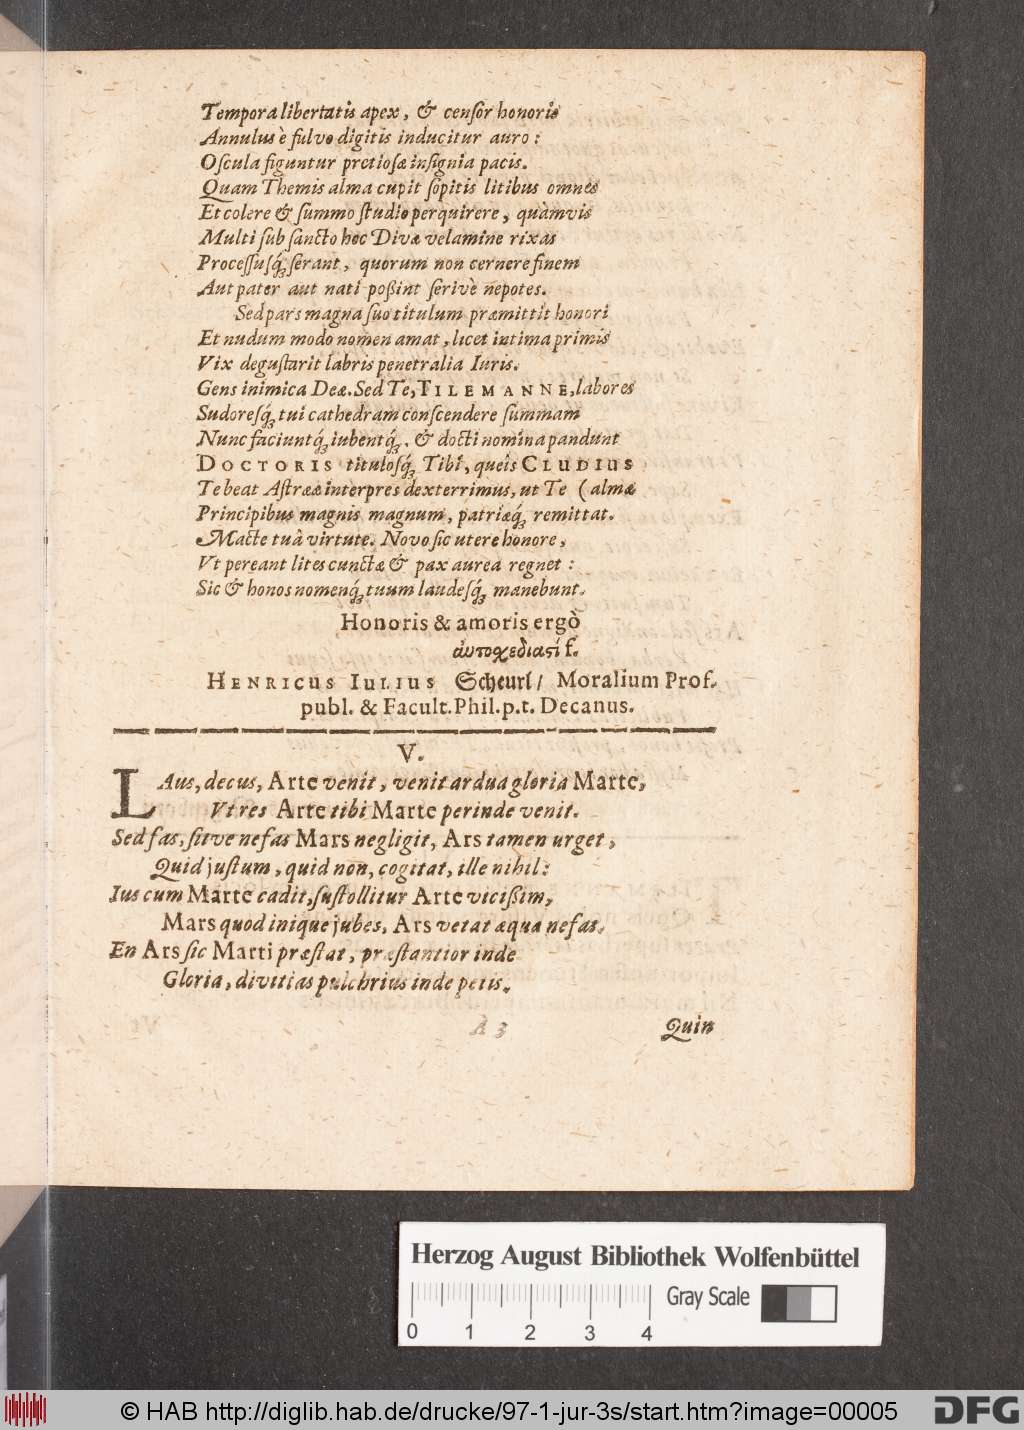 Tempora libertatis apex, & censor honoris
Annulus è fulvo digitis inducitur auro:
Oscula figuntur pretiosæ insignia pacis.
Quam Themis alma cupit sopitis litibus omnes
Et colere & summo studio perquirere, quàmvis
Multi sub sancto hoc Divæ velamine rixas
Processusq́; serant, quorum non cernere finem
Aut pater aut nati poßint serivè nepotes.
Sed pars magna suo titulum præmittit honori
Et nudum modo nomen amat, licet intima primis
Vix degustarit labris penetralia Iuris.
Gens inimica Deæ. Sed Te, TILEMANNE, labores
Sudoresq́; tui cathedram conscendere summam
Nunc faciuntq́; iubentq́;, & docti nomina pandunt
DOCTORIS titulosq́; Tibi, queis CLUDIUS
Te beat Astrææ interpres dexterrimus, ut Te (almæ
Principibus magnis magnum, patriæq́; remittat.
Macte tuâ virtute. Novo sic utere honore,
Vt pereant lites cunctæ & pax aurea regnet:
Sic & honos nomenq́; tuum laudesq́; manebunt.
Honoris & amoris ergò
αὐτοχεδιαστί f.
HENRICUS IULIUS Scheurl/ Moralium Prof.
publ. & Facult. Phil. p. t. Decanus.
V.
LAus, decus, Arte venit, venit ardua gloria Marte,
Vt res Arte tibi Marte perinde venit.
Sed fas, sitve nefas Mars negligit, Ars tamen urget,
Quid justum, quid non, cogitat, ille nihil:
Ius cum Marte cadit, sustollitur Arte vicißim,
Mars quod inique jubes, Ars vetat æqua nefas.
En Ars sic Marti præstat, præstantior inde
Gloria, divitias pulchrius inde petis.
A 3 Quin
Herzog August Bibliothek Wolfenbüttel
Gray Scale
0 1 2 3 4
© HAB http://diglib.hab.de/drucke/97-1-jur-3s/start.htm?image=00005
DFG